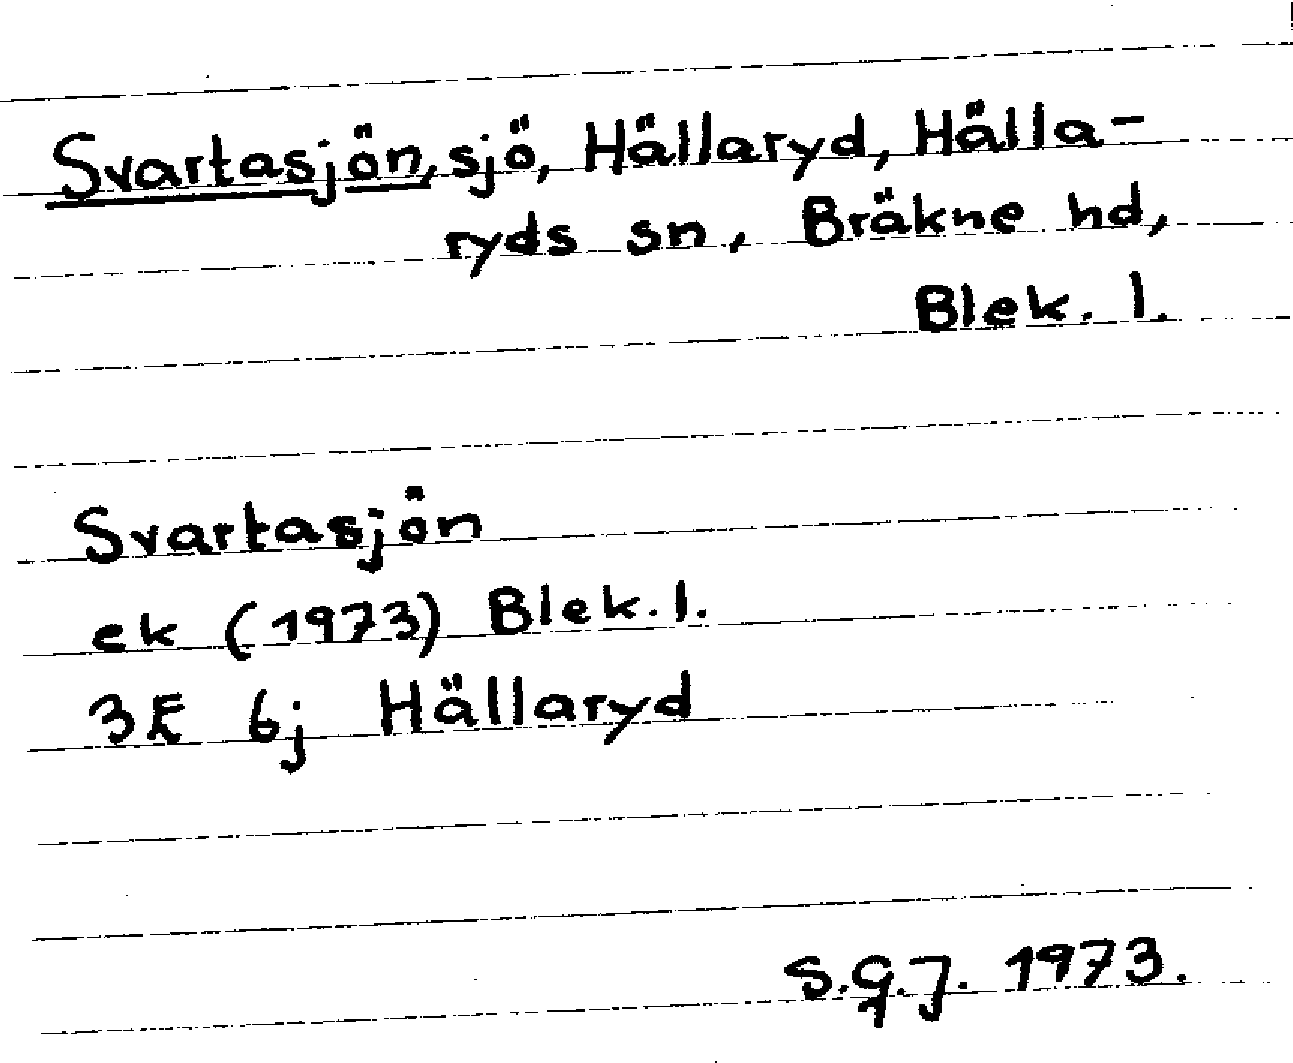 Svartasjön, sjö, Hällaryd, Hälla-
ryds sn, Bräkne hd,
Blek. l.
Svartasjön
ek (1973) Blek. l.
3E 6j Hällaryd
S.G.J. 1973.